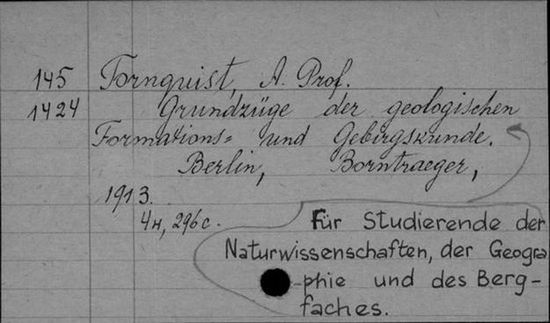 145 Tornquist, A. Prof.
1424 Grundzüge der geologischen
Formations= und Gebirgskunde.
Berlin, Borntraeger,
1913.
4н, 296 с.
Für Studierende der
Naturwissenschaften, der Geogra
phie und des Berg-
faches.